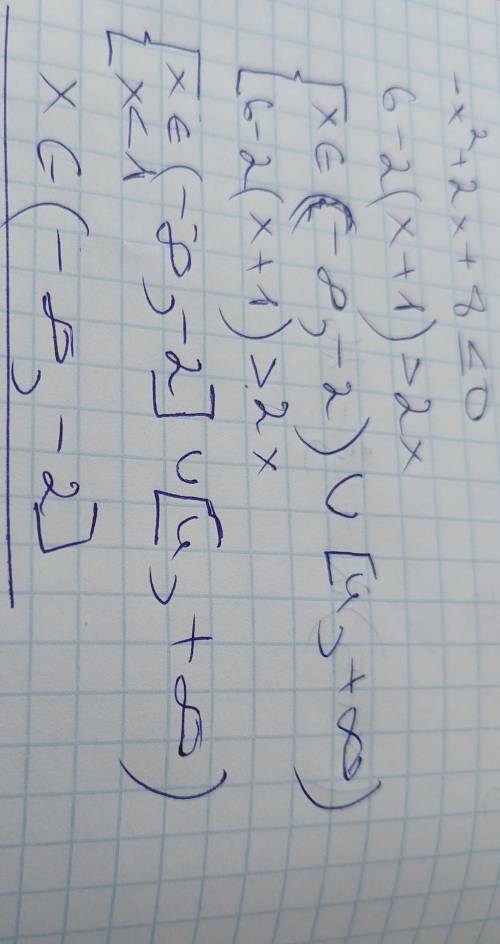 -x²+2x+8≤0
6-2(x+1)>2x
x∈(-∞,-2)∪[4,+∞)
6-2(x+1)>2x
x∈(-∞,-2]∪[4,+∞)
x<1
x∈(-∞,-2]